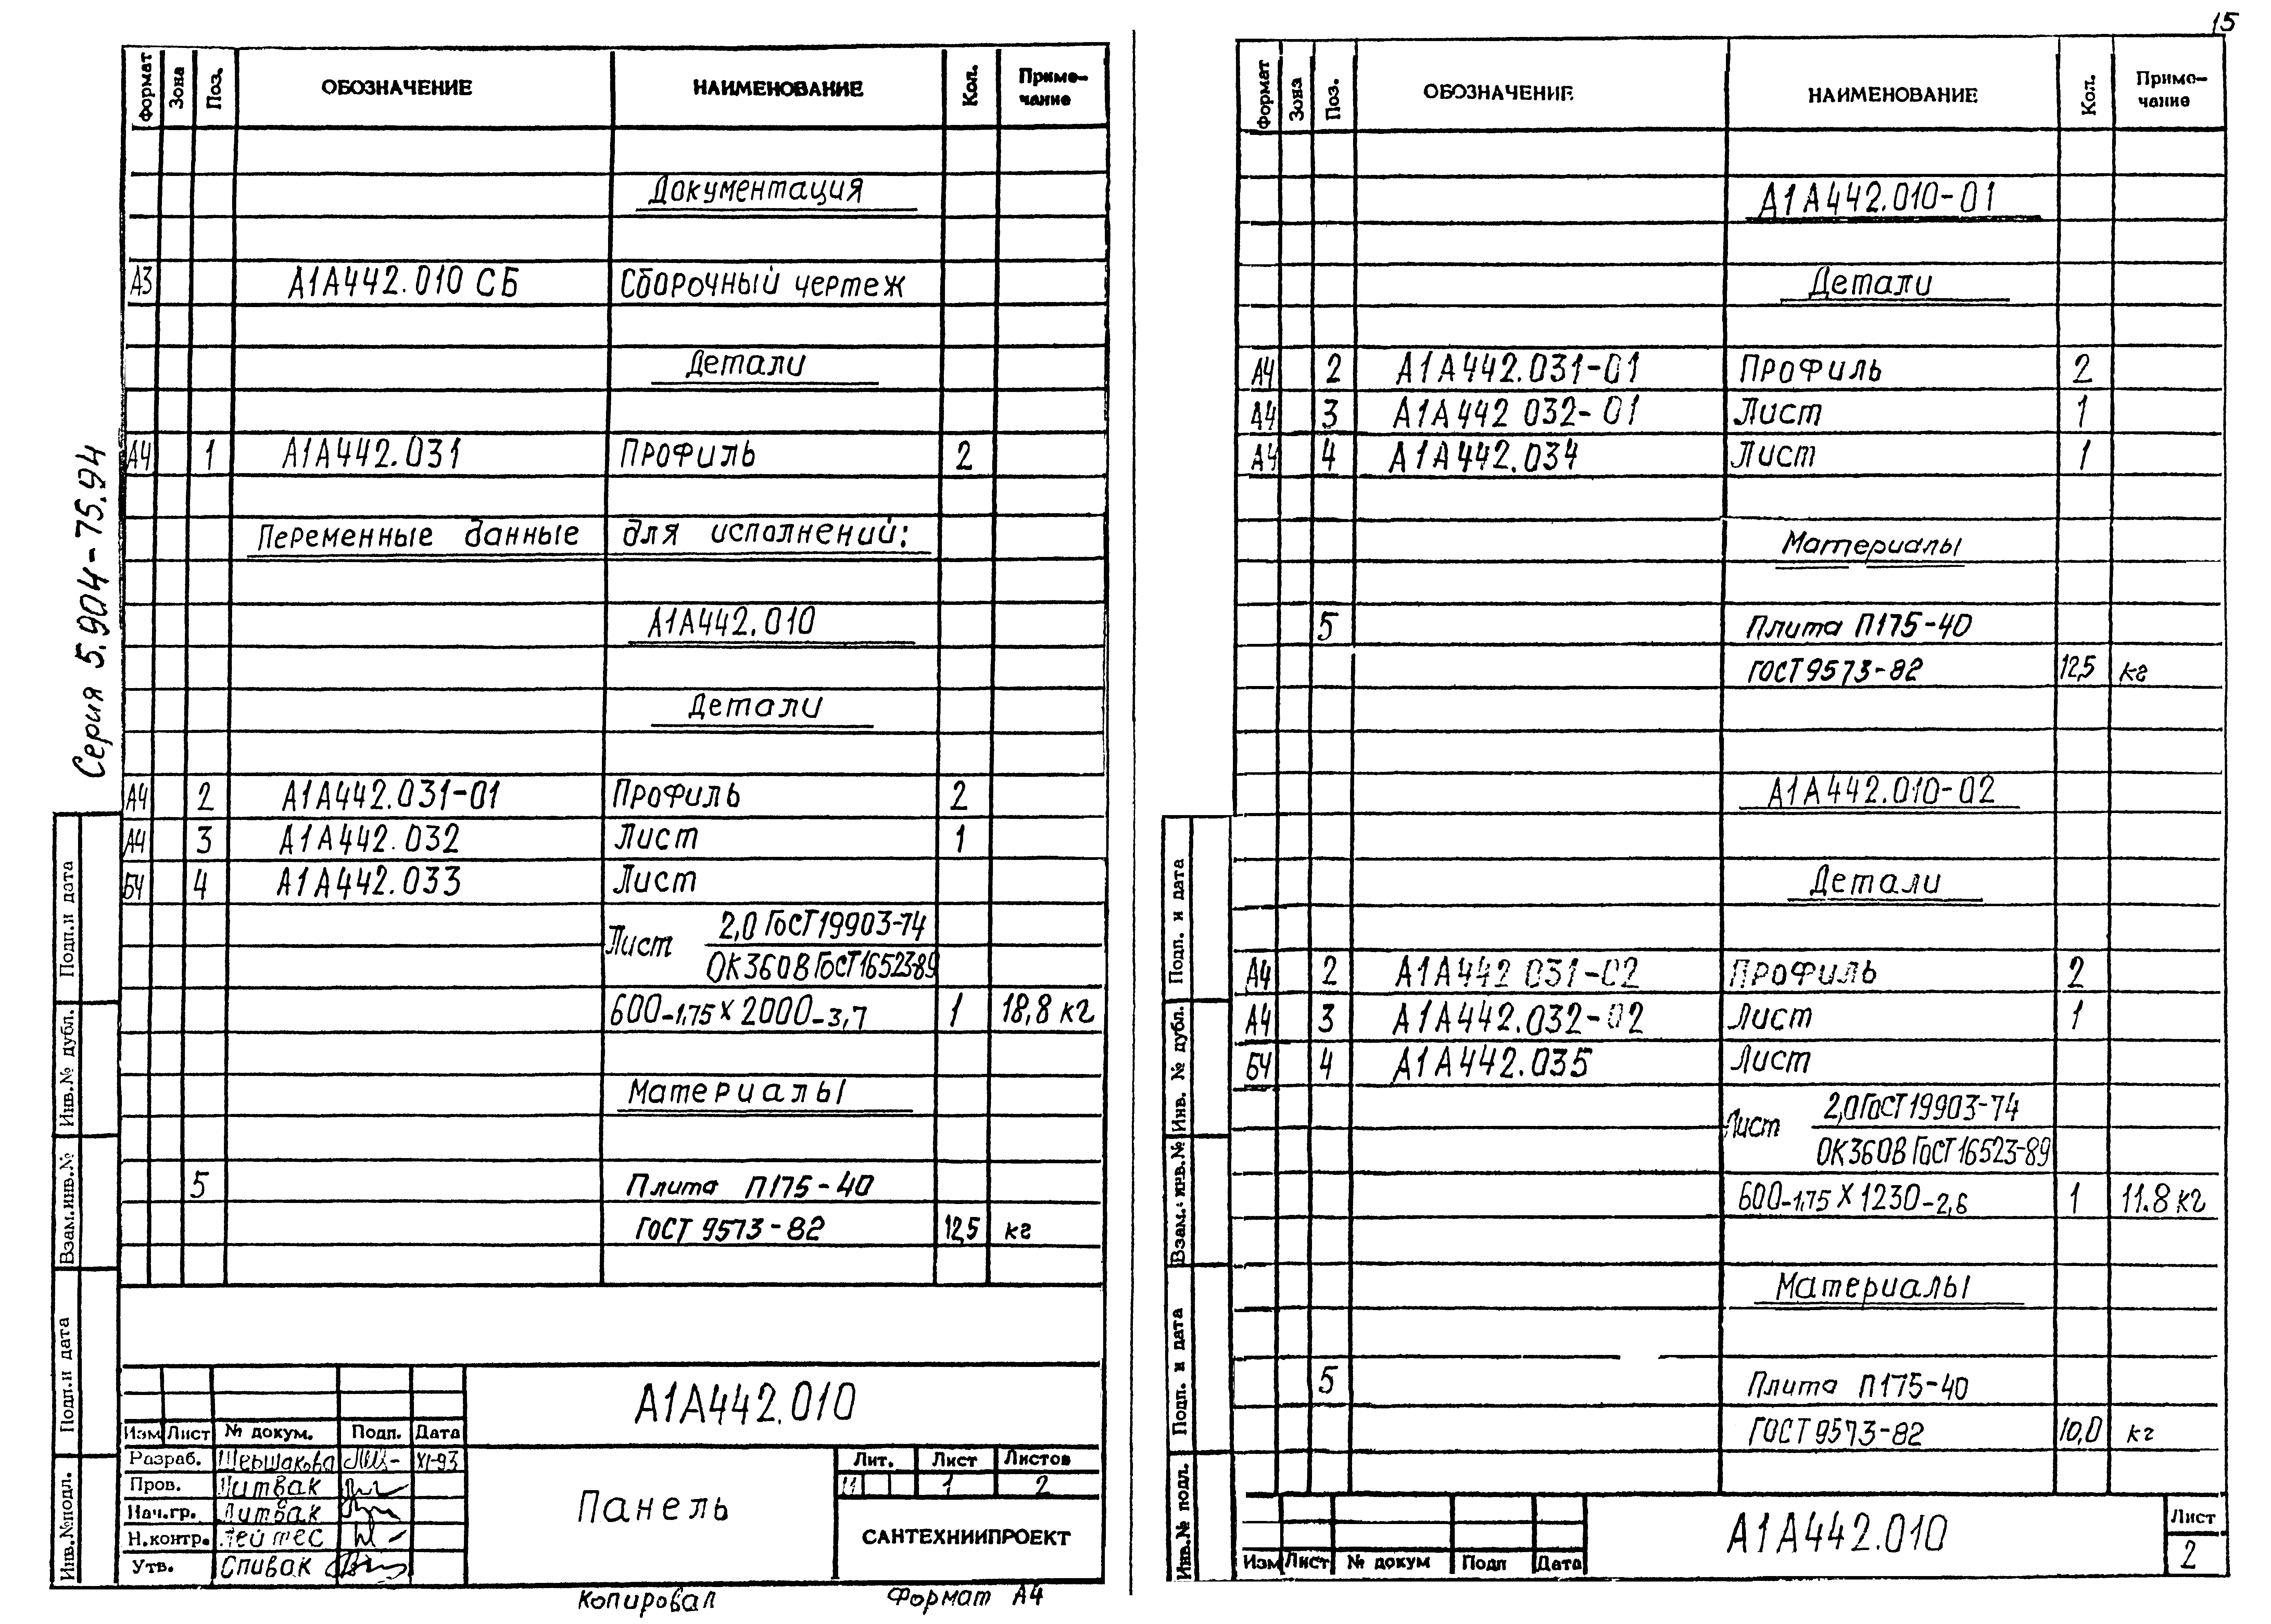 15
Серия 5.904-75.94
Формат Зона Поз. ОБОЗНАЧЕНИЕ НАИМЕНОВАНИЕ Кол. Приме-
чание
Документация
А3 А1А442.010 СБ Сборочный чертеж
Детали
А4 1 А1А442.031 Профиль 2
Переменные данные для исполнений:
А1А442.010
Детали
А4 2 А1А442.031-01 Профиль 2
А4 3 А1А442.032 Лист 1
БЧ 4 А1А442.033 Лист
Лист 2,0 ГОСТ 19903-74
ОК360В ГОСТ 16523-89
600-1,75 х 2000-3,7 1 18,8 кг
Материалы
5 Плита П175-40
ГОСТ 9573-82 12,5 кг
Подп.и дата
Инв.№ дубл.
Взам.инв.№
Подп.и дата
Инв.№подл.
А1А442.010
Изм Лист № докум. Подп. Дата
Разраб. Шершакова XI-93
Пров. Литвак
Нач.гр. Литвак
Н.контр. Лейтес
Утв. Спивак
Панель
Лит. Лист Листов
И 1 2
САНТЕХНИИПРОЕКТ
Копировал Формат А4
Формат Зона Поз. ОБОЗНАЧЕНИЕ НАИМЕНОВАНИЕ Кол. Приме-
чание
А1А442.010-01
Детали
А4 2 А1А442.031-01 Профиль 2
А4 3 А1А442 032-01 Лист 1
А4 4 А1А442.034 Лист 1
Материалы
5 Плита П175-40
ГОСТ 9573-82 12,5 кг
А1А442.010-02
Детали
А4 2 А1А442 031-02 Профиль 2
А4 3 А1А442.032-02 Лист 1
БЧ 4 А1А442.035 Лист
Лист 2,0 ГОСТ 19903-74
ОК360В ГОСТ 16523-89
600-1,75 х 1230-2,6 1 11.8 кг
Материалы
5 Плита П175-40
ГОСТ 9573-82 10,0 кг
Подп. и дата
Инв. № дубл.
Взам. инв.№
Подп. и дата
Инв.№ подл.
Изм Лист № докум Подп Дата
А1А442.010
Лист
2